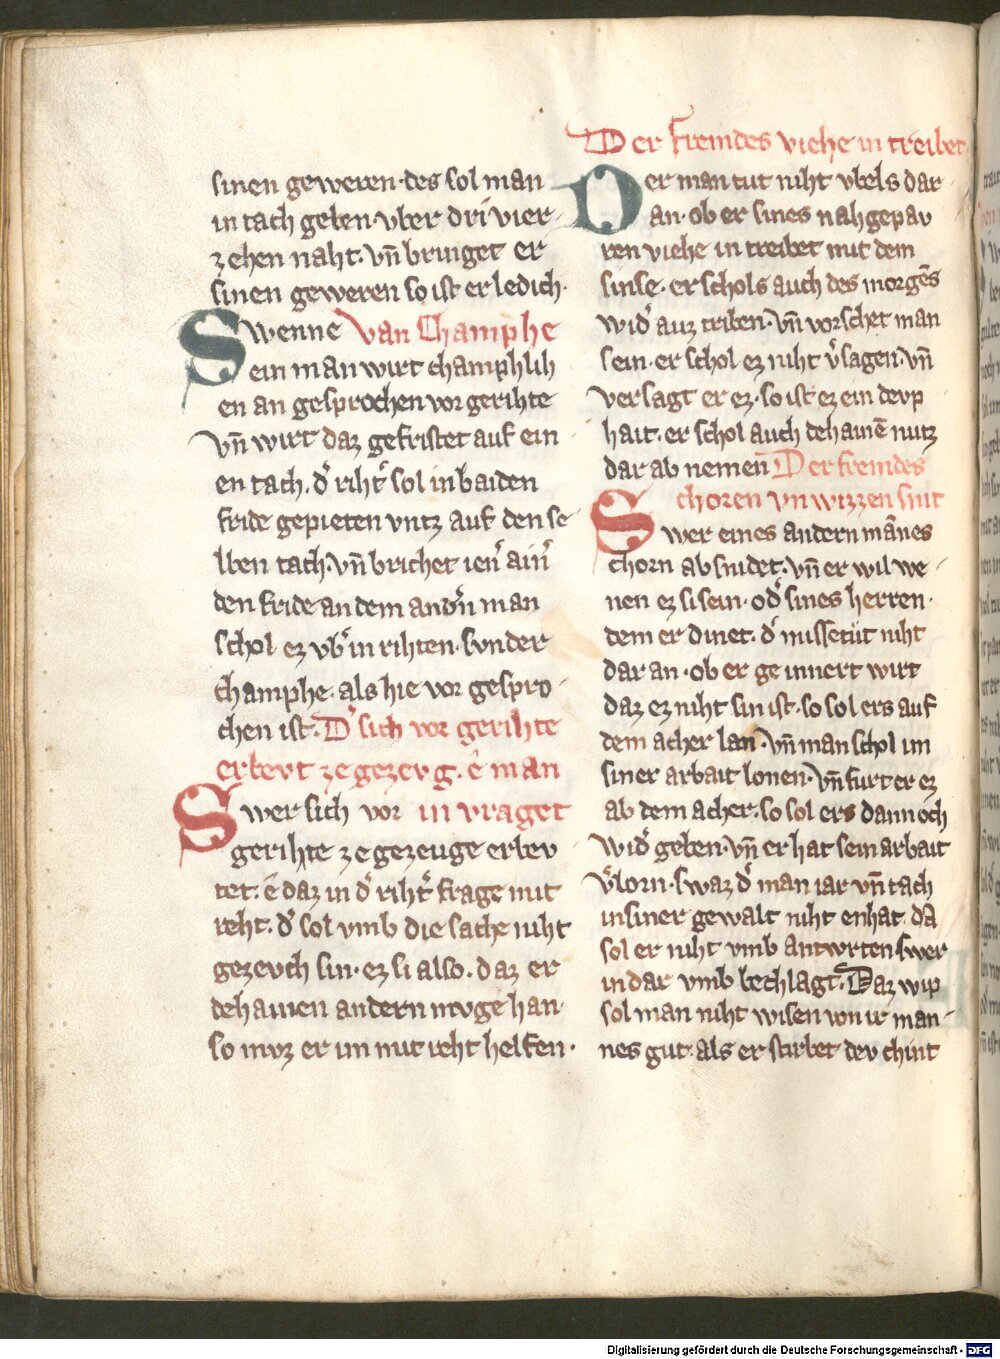 sinen geweren· des sol man
in tach geben· vber dri vier-
zehen naht. vn̄ bringet er
sinen geweren so ist er ledich·
Swenne Van Champhe
ein man wirt champhlih
en an gesprochen vor gerihte
vn̄ wirt daz gefristet auf ein
en tach. d᷑ riht᷑ sol in baiden
fride gepieten vntz auf den se
lben tach. vn̄ brichet ien᷑ ain᷑
den fride an dem and᷑n man
schol ez vb᷑ in rihten. svnder
champhe. als hie vor gespro-
chen ist. D᷑ sich vor gerihte
erbevt ze gezevg. ê man
Swer sich vor in vraget
gerihte ze gezeuge erbev
tet. ê daz in d᷑ riht᷑ frage mit
reht. d᷑ sol vmb die sache niht
gezevch sin· ez si also. daz er
dehainen andern mvge han·
so mvz er im mit reht helfen·
Der fremdes viehe in treibet
Der man tut niht vbels dar-
an· ob er sines nahgepav
ren viehe in treibet mit dem
sinse· er schols auch des morgēs
wid᷑ auz triben. vn̄ vorschet man
sein· er schol ez niht v᷑sagen. vn̄
versagt er ez· so ist ez ein devp
hait. er schol auch dehainē nutz
dar ab nemen Der fremdes
choren vn wizzen snit
Swer eines andern mānes
chorn ab snidet. vn̄ er wil we-
nen ez si sein· od᷑ sines herren·
dem er dinet· d᷑ missetüt niht
dar an· ob er ge innert wirt
daz ez niht sin ist· so sol ers auf
dem acher lan. vn̄ man schol im
siner arbait lonen. vn̄ furt er ez
ab dem acher. so sol ers dannoch
wid᷑ geben. vn̄ er hat sein arbait
v᷑lorn. swaz d᷑ man iar vn̄ tach
in siner gewalt niht enhat. da
sol er niht vmb antwrten. swer
in dar vmb bechlagt. Daz wip
sol man niht wisen von ir man-
nes gut. als er stirbet dev chint
Digitalisierung gefördert durch die Deutsche Forschungsgemeinschaft - DFG